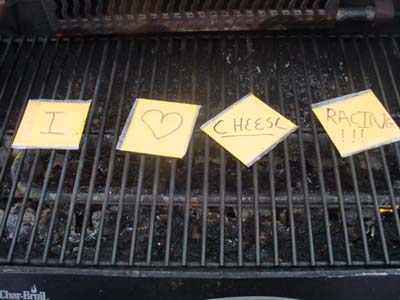 I
♡
CHEESE
RACING
!!!
Char-Broil